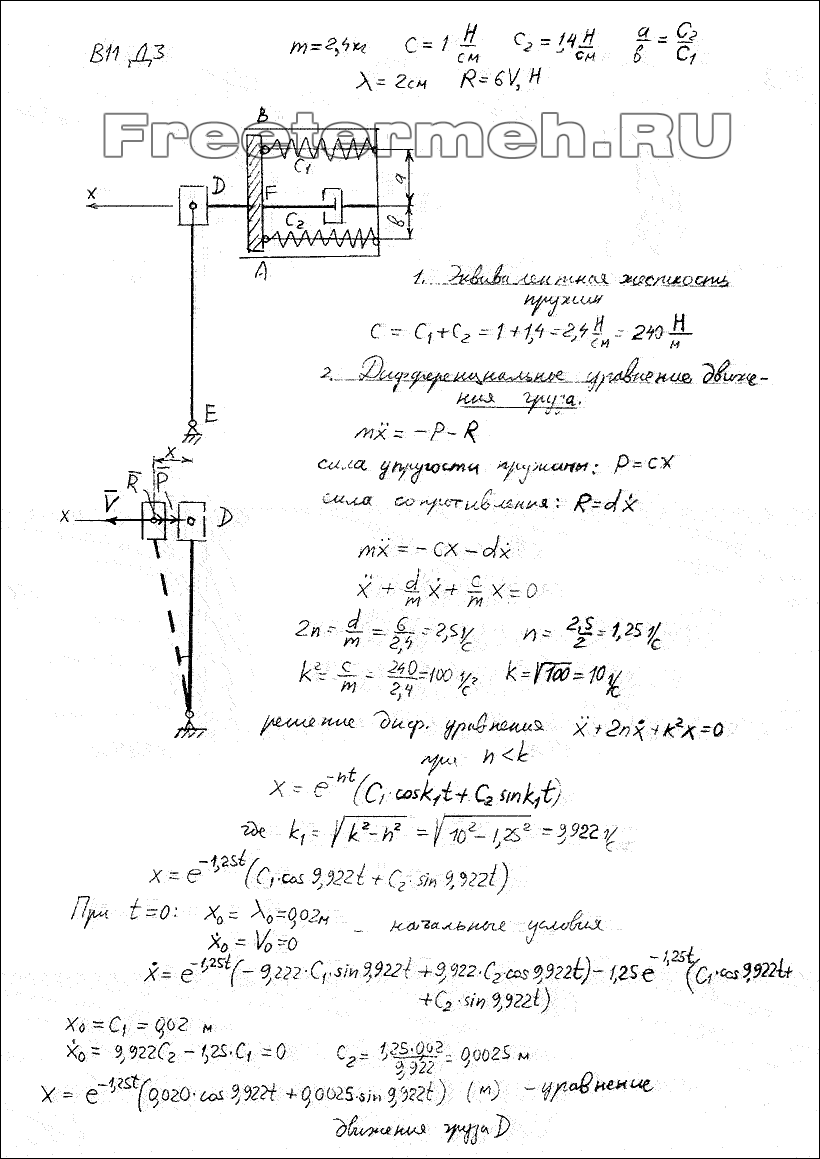 В11, Д3
m=2,4кг C=1 Н/см C₂=1,4 Н/см a/в = C₂/C₁
λ=2см R=6V, Н
Freetermeh.RU
B
C₁
D
F
x
a
C₂
в
A
1. Эквивалентная жесткость
пружин
C = C₁+C₂ = 1+1,4=2,4 Н/см = 240 Н/м
2. Дифференциальное уравнение движе-
ния груза.
E
mẍ = -P-R
x
сила упругости пружины: P=cx
R̅ P̅
V̅
сила сопротивления: R=dẋ
x D
mẍ = -cx-dẋ
ẍ + d/m ẋ + c/m x=0
2n = d/m = 6/2,4 = 2,5 1/с n = 2,5/2 = 1,25 1/с
k² = c/m = 240/2,4 = 100 1/с² k=√100 = 10 1/с
решение диф. уравнения ẍ+2nẋ+k²x=0
при n<k
x = e^-nt (C₁·cosk₁t + C₂ sink₁t)
где k₁ = √k²-n² = √10²-1,25² = 9,922 1/с
x = e^-1,25t (C₁·cos 9,922t + C₂·sin 9,922t)
При t=0: x₀ = λ₀=0,02м - начальные условия
ẋ₀ = V₀=0
ẋ = e^-1,25t (-9,222·C₁·sin9,922t + 9,922·C₂cos9,922t) - 1,25e^-1,25t (C₁·cos9,922t+
+C₂·sin9,922t)
x₀ = C₁ = 0,02 м
ẋ₀ = 9,922C₂ - 1,25·C₁ = 0 C₂ = 1,25·0,02/9,922 = 0,0025 м
x = e^-1,25t (0,020·cos 9,922t + 0,0025·sin 9,922t) (м) - уравнение
движения груза D